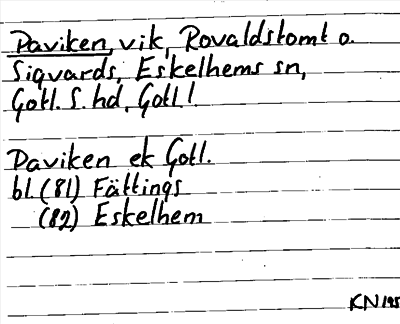 Paviken, vik, Rovaldstomt o.
Sigvards, Eskelhems sn,
Gotl. S. hd, Gotl. l.
Paviken ek Gotl.
bl. (81) Fättings
(82) Eskelhem